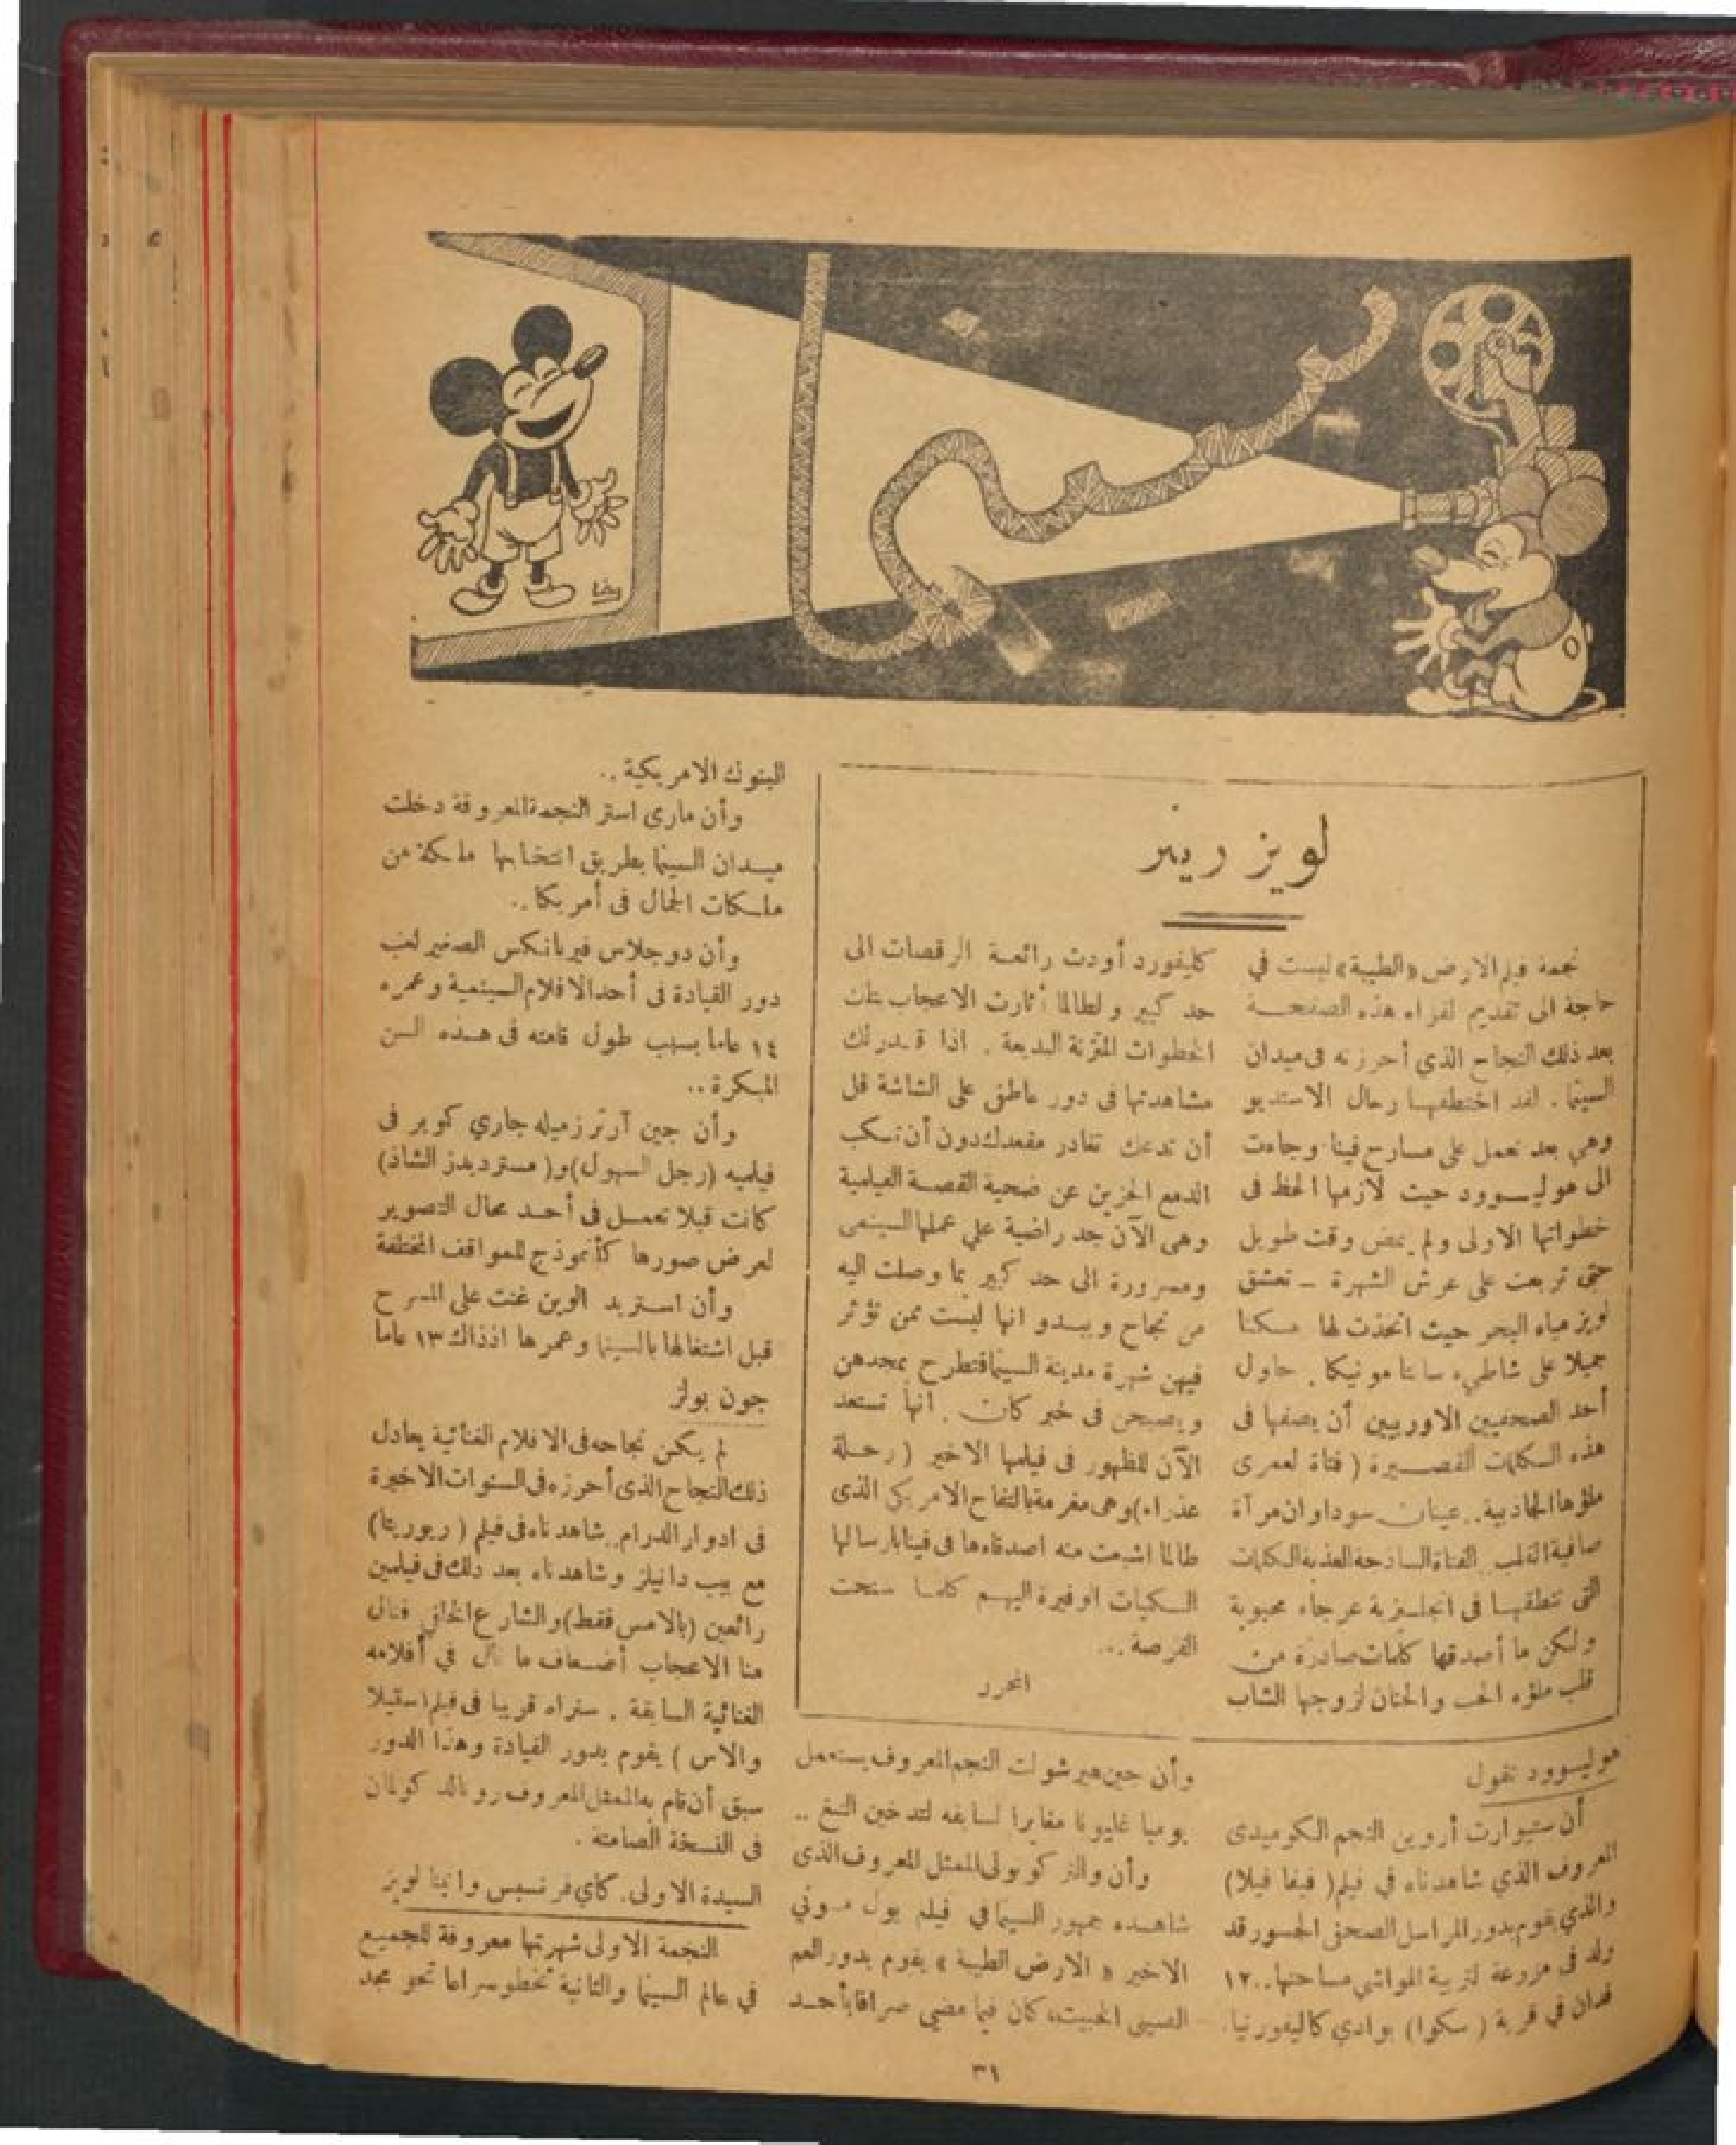 سينما
رضا
لويز رينر
نجمة فيلم الارض «الطيبة» ليست في
حاجة الى تقديم لقراء هذه الصفحة
بعد ذلك النجاح الذي أحرزته في ميدان
السينما . لقد اختطفها رجال الاستديو
وهي بعد تعمل على مسارح فينا وجاءت
الى هوليوود حيث لازمها الحظ في
خطواتها الاولى ولم يمض وقت طويل
حتى تربعت على عرش الشهرة ــ تعشق
لويز مياه البحر حيث اتخذت لها مسكنا
جميلا على شاطيء سانتا مونيكا . حاول
أحد الصحفيين الاوربيين أن يصفها في
هذه الكلمات القصيرة ( فتاة لعمرى
ملؤها الجاذبية .. عينان سوداوان مرآة
صافية القلب .. الفتاة الساذجة العذبة الكلمات
التى تنطقها فى انجليزية عرجاء محبوبة
ولكن ما أصدقها كلمات صادرة من
قلب ملؤه الحب والحنان لزوجها الشاب
كليفورد أودت رائعة الرقصات الى
حد كبير ولطالما أثارت الاعجاب بتلك
الخطوات المتزنة البديعة . اذا قدر لك
مشاهدتها فى دور عاطفى على الشاشة قل
أن تدعك تغادر مقعدك دون أن تسكب
الدمع الحزين عن ضحية القصة الفيلمية
وهى الآن جد راضية علي عملها السينمى
ومسرورة الى حد كبير بما وصلت اليه
من نجاح ويبدو انها ليست ممن تؤثر
فيهن شهرة مدينة السينما فتطرح بمجدهن
ويصبحن فى خبر كان . انها تستعد
الآن للظهور فى فيلمها الاخير ( رحلة
عذراء ) وهى مغرمة بالتفاح الامريكى الذى
طالما اشبعت منه اصدقاءها فى فينا بارسالها
الكميات الوفيرة اليهم كلما سنحت
الفرصة ...
المحرر
هوليوود تقول
أن ستيوارت أروين النجم الكوميدى
المعروف الذي شاهدناه في فيلم ( فيفا فيلا )
والذي يقوم بدور المراسل الصحفى الجسور قد
ولد فى مزرعة لتربية المواشي مساحتها ١٢٠٠
فدان في قرية ( سكوا ) بوادي كاليفورنيا .
وأن جين هيرشولت النجم المعروف يستعمل
يوميا غليونا مغايرا لسابقه لتدخين التبغ ..
وأن والتر كونولى الممثل المعروف الذى
شاهده جمهور السينما في فيلم بول موني
الاخير « الارض الطيبة » يقوم بدور العم
الصينى الخبيث، كان فيما مضى صرافا بأحد
البنوك الامريكية ..
وأن مارى استر النجمة المعروفة دخلت
ميدان السينما بطريق انتخابها ملكة من
ملكات الجمال فى أمريكا ..
وأن دوجلاس فيربانكس الصغير لعب
دور القيادة فى أحد الافلام السينمية وعمره
١٤ عاما بسبب طول قامته فى هذه السن
المبكرة ..
وأن جين آرثر زميله جاري كوبر فى
فيلميه ( رجل السهول ) و ( مستر ديدز الشاذ )
كانت قبلا تعمل فى أحد محال التصوير
لعرض صورها كأنموذج للمواقف المختلفة
وأن استريد الوين غنت على المسرح
قبل اشتغالها بالسينما وعمرها اذذاك ١٣ عاما
جون بولز
لم يكن نجاحه فى الافلام الغنائية يعادل
ذلك النجاح الذى أحرزه فى السنوات الاخيرة
فى ادوار الدرام .. شاهدناه فى فيلم ( ريوريتا )
مع بيب دانيلز وشاهدناه بعد ذلك فى فيلمين
رائعين ( بالامس فقط ) و الشارع الخلفى فنال
منا الاعجاب أضعاف ما نال في أفلامه
الغنائية السابقة . سنراه قريبا فى فيلم ( ستيلا
دالاس ) يقوم بدور القيادة وهذا الدور
سبق أن قام به الممثل المعروف رونالد كولمان
فى النسخة الصامتة .
السيدة الاولى . كاي فرنسيس وانيتا لويز
النجمة الاولى شهرتها معروفة للجميع
في عالم السينما والثانية تخطو سراعا نحو مجد
٣١